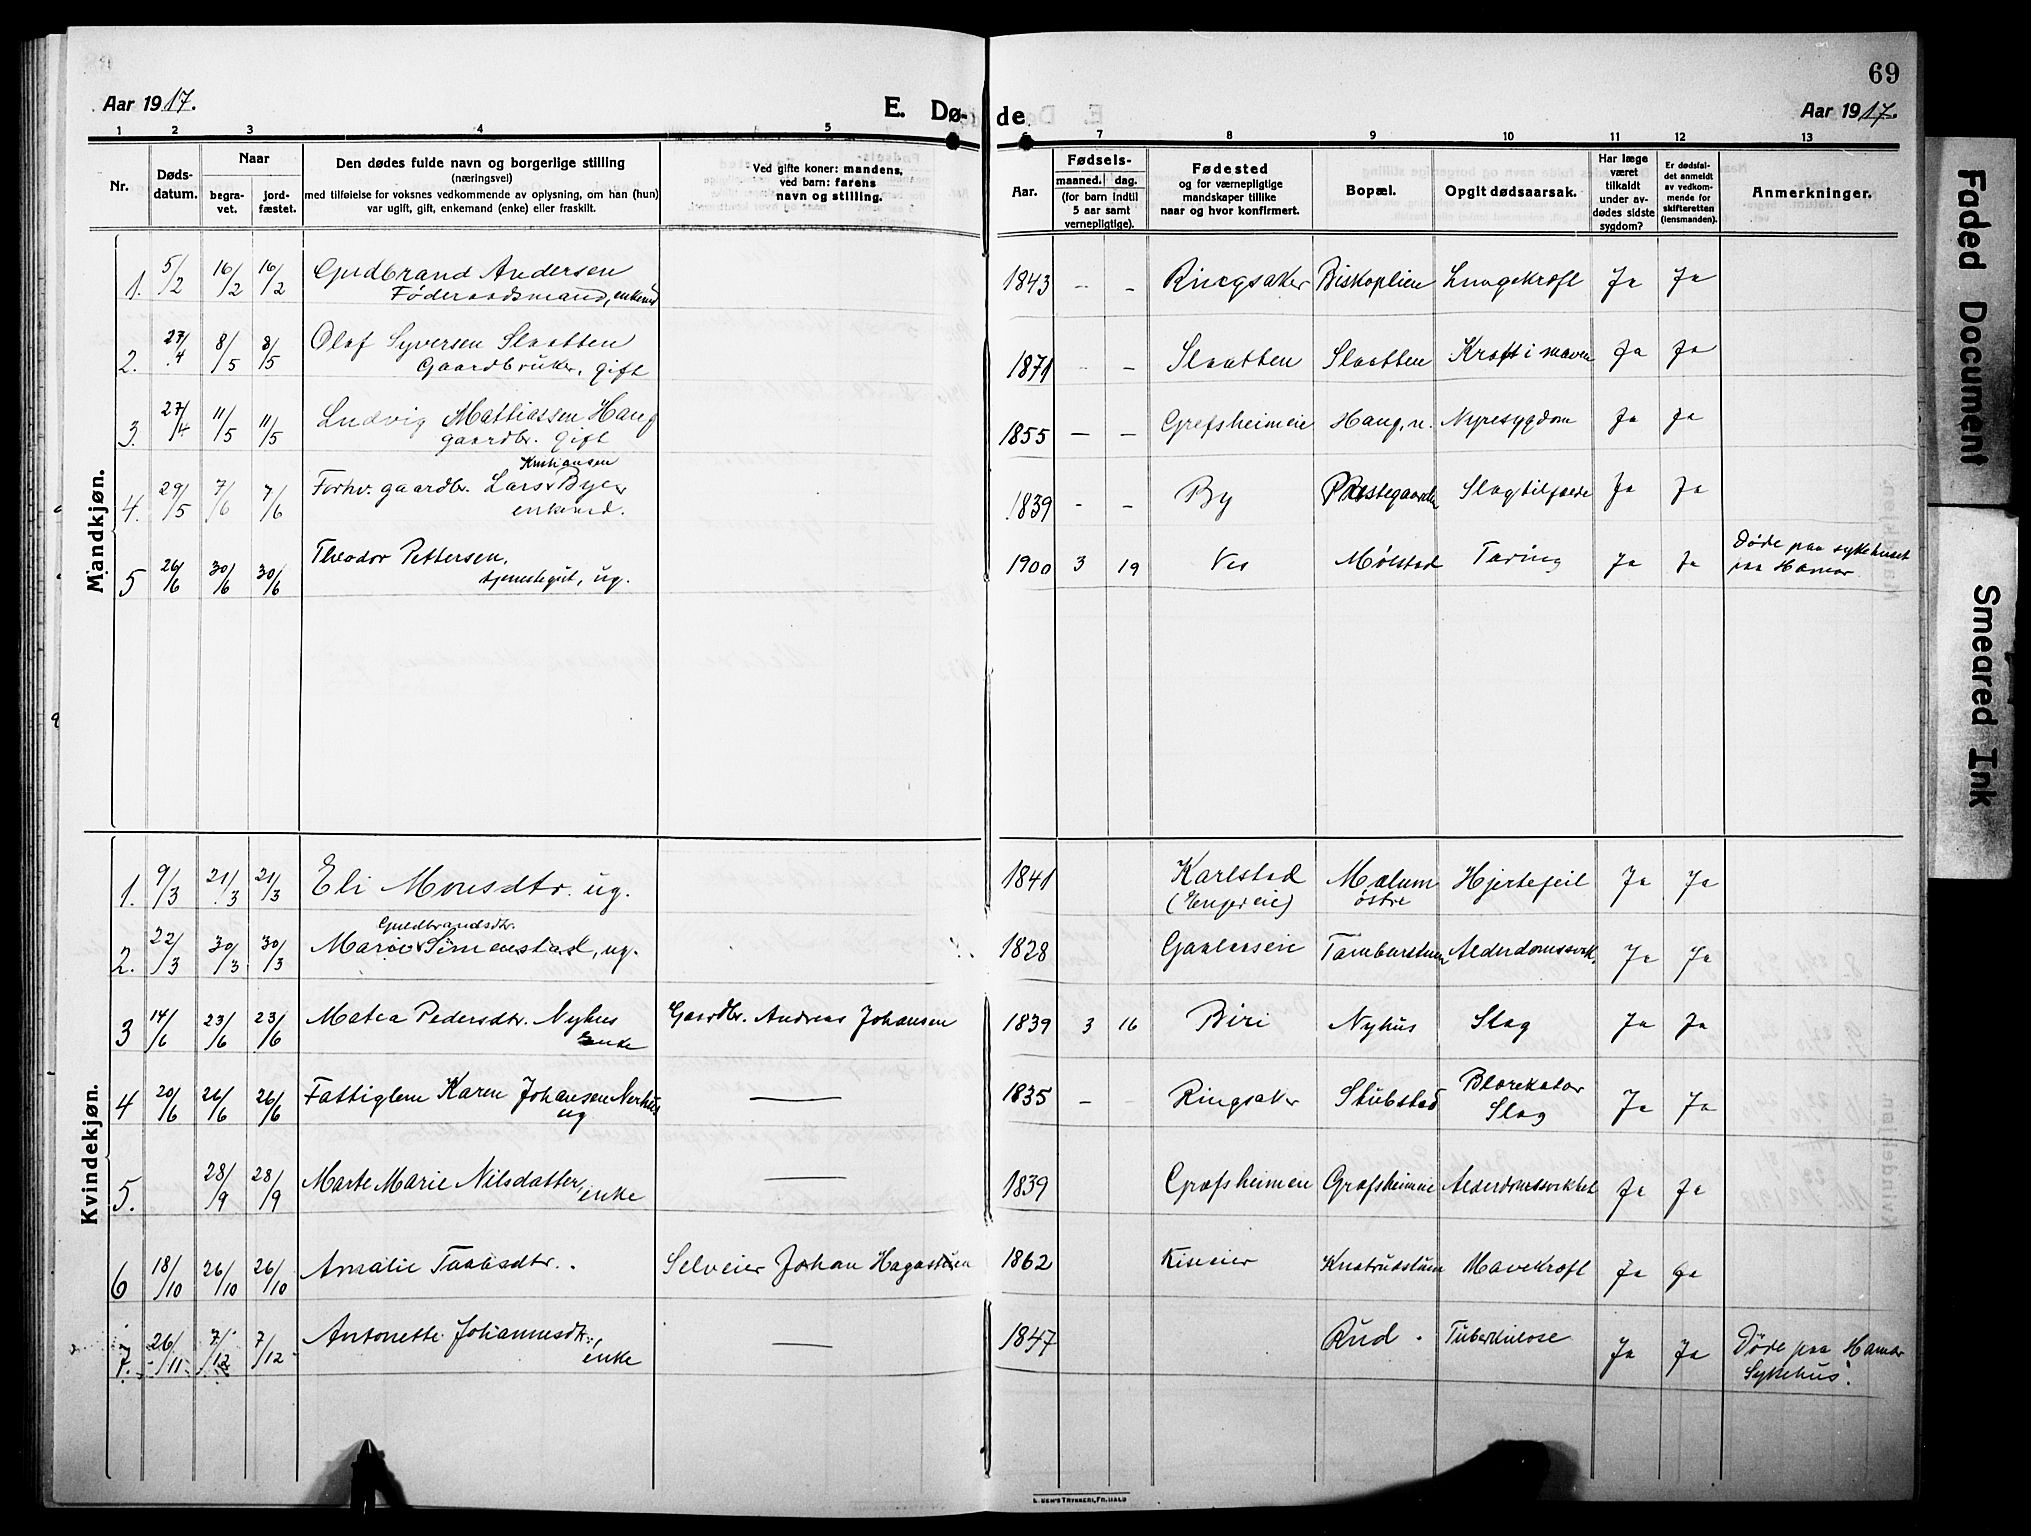 69
Aar 1917.
E. Dø-
de.
Aar 1917.
1 2 3 4 5 6 7 8 9 10 11 12 13
Nr.
Døds-
datum.
Naar
begra-
vet.
jord-
fæstet.
Den dødes fulde navn og borgerlige stilling
(næringsvei)
med tilføielse for voksnes vedkommende av oplysning, om han (hun)
var ugift, gift, enkemand (enke) eller fraskilt.
Ved gifte koner: mandens,
ved barn: farens
navn og stilling.
Aar.
Fødsels-
maaned. dag.
(for barn indtil
5 aar samt
vernepligtige).
Fødested
og for værnepligtige
mandskaper tillike
naar og hvor konfirmert.
Bopæl.
Opgit dødsaarsak.
Har læge
været
tilkaldt
under av-
dødes sidste
sygdom?
Er dødsfal-
det anmeldt
av vedkom-
mende for
skifteretten
(lensmanden).
Anmerkninger.
Mandkjøn.
1. 5/2 16/2 16/2 Gudbrand Andersen 1843 - - Ringsaker Biskoplien Lungekræft Ja Ja
Føderaadsmand, enkemd
2. 27/4 8/5 8/5 Olaf Syversen Slaatten 1871 - - Slaatten Slaatten Kræft i maven Ja Ja
Gaardbruker, gift
3. 27/4 11/5 11/5 Ludvig Mathiassen Haug 1855 - - Grefsheimeie Haug, n. Nyresygdom Ja Ja
gaardbr. gift
Kristiansen
4. 29/5 7/6 7/6 Forhv. gaardbr. Lars Bye 1839 - - By Præstegaarden Slagtilfælde Ja Ja
enkemd.
5 26/6 30/6 30/6 Theodor Pettersen, 1900 3 19 Ves Mølstad Tæring Ja Ja Døde paa sykehuset
tjenestegut, ug. paa Hamar
Kvindekjøn.
1. 9/3 21/3 21/3 Eli Monsdtr. ug. 1841 Karlstad Malum Hjertefeil Ja Ja
østre
Guldbrandsdtr.
2. 22/3 30/3 30/3 Marie Simenstad, ug. 1828 Gaalaseie Tamburstuen Alderdomssvk. Ja Ja
3 14/6 23/6 23/6 Matea Pedersdtr. Nyhus Gaardbr. Andreas Johansen 1839 3 16 Biri Nyhus Slag Ja Ja
Enke
4 20/6 26/6 26/6 Fattiglem Karen Johansen Nerhus — 1835 - - Ringsaker Stubstad Blærekatar Ja Ja
ug Slag
5. 28/9 28/9 Marte Marie Nilsdatter — 1839 Grefsheimeie Grefsheimeie Alderdomssvakhet Ja Ja
enke
6 18/10 26/10 26/10 Amalie Taabsdtr. Selveier Johan Hagastuen 1862 Kiseeier Knatrudstuen Mavekræft Ja Ja
7. 26/11 7/12 7/12 Antonette Johannesdtr. — 1847 Rud. Tuberkulose Ja Ja Døde paa Hamar
enke Sykehus.
Faded Document
Smeared Ink